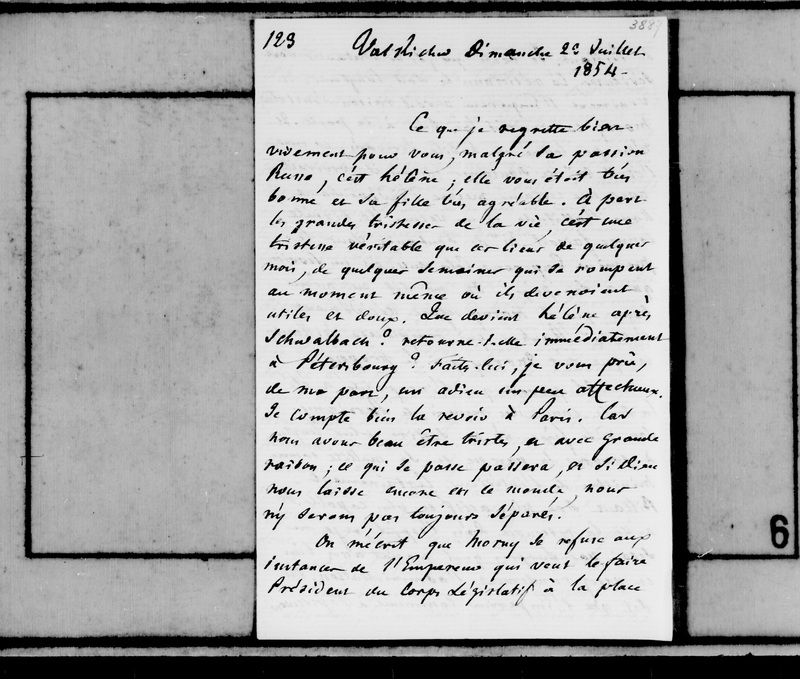 123
3887
Val Richer Dimanche 2 Juillet
1854-
Ce que je regrette bien
vivement pour vous, malgré sa passion
Russe, c'est hélène ; elle vous était très
bonne et sa fille très agréable. À part
les grandes tristesses de la vie, c'est une
tristesse véritable que ces liens de quelques
mois, de quelques semaines qui se rompent
au moment même où ils devenoient
utiles et doux. Que devient hélène après
Schwalbach ? retourne-t-elle immédiatement
à Pétersbourg ? Faites-lui, je vous prie,
de ma part, un adieu un peu affectueux.
Je compte bien la revoir à Paris. Car
nous avons beau être tristes, et avec grande
raison ; ce qui se passe passera, et si Dieu
nous laisse encore en ce monde, nous
n'y serons pas toujours séparés.
On m'écrit que Morny se refuse aux
instances de l'Empereur qui veut le faire
Président du Corps Législatif à la place
6